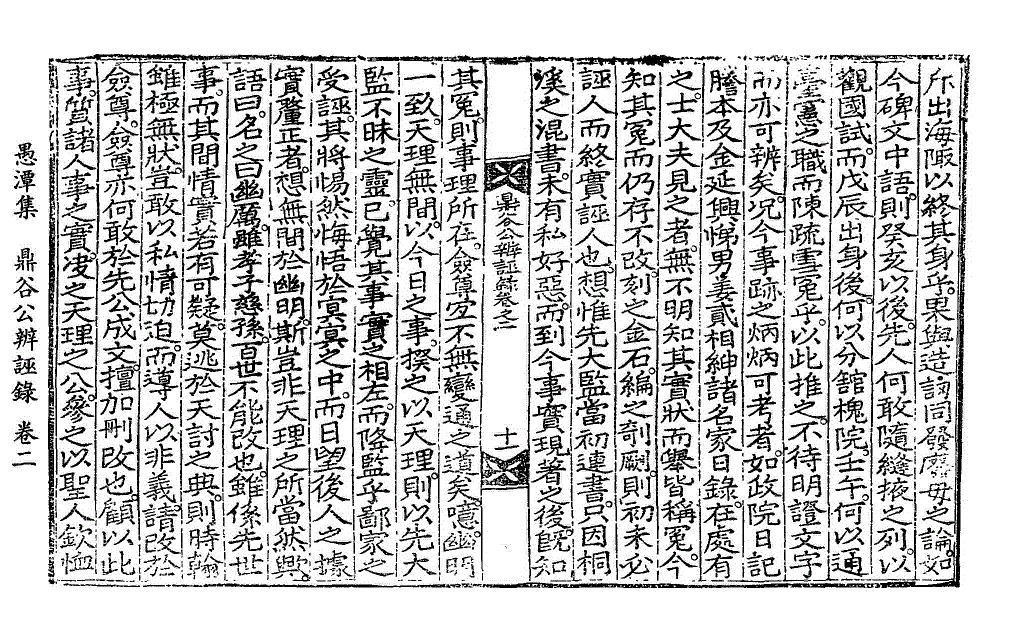 斥出海陬以終其身乎果與造詢同發廢母之論如
今碑文中語則癸亥以後先人何敢隨縫掖之列以
觀國試而戊辰出身後何以分館槐院壬午何以通
臺憲之職而陳疏雪冤乎以此推之不待明證文字
而亦可辨矣况今事跡之炳炳可考者如政院日記
謄本及金延興悌男姜貳相紳諸名家日錄在處有
之士大夫見之者無不明知其實狀而擧皆稱冤今
知其冤而仍存不改刻之金石編之剞劂則初未必
誣人而終實誣人也想惟先大監當初連書只因桐
溪之混書未有私好惡而到今事實現著之後旣知
鼎谷公辨誣錄卷之二
十一
其冤則事理所在僉尊宜不無變通之道矣噫幽明
一致天理無間以今日之事揆之以天理則以先大
監不昧之靈已覺其事實之相左而降監乎鄙家之
受誣其將惕然悔悟於冥冥之中而日望後人之據
實釐正者想無間於幽明斯豈非天理之所當然歟
語曰名之曰幽厲雖孝子慈孫百世不能改也雖係先世
事而其間情實若有可疑莫逃於天討之典則時翰
雖極無狀豈敢以私情切迫而導人以非義請改於
僉尊僉尊亦何敢於先公成文擅加刪改也顧以此
事質諸人事之實决之天理之公參之以聖人欽恤
愚潭集　鼎谷公辨誣錄　卷二